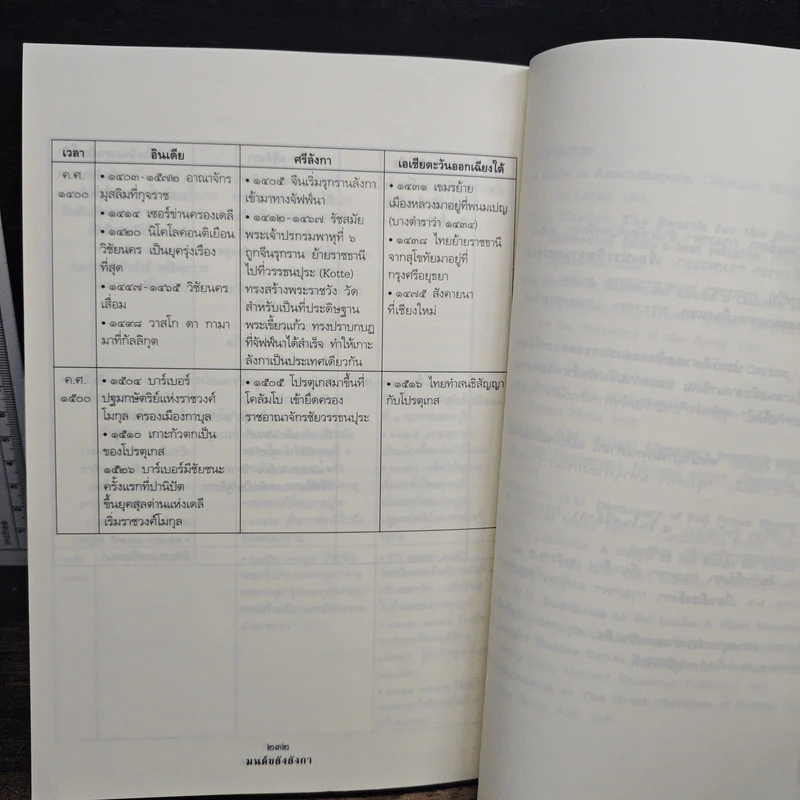 เวลา
อินเดีย
ศรีลังกา
เอเชียตะวันออกเฉียงใต้
ค.ศ.
๑๔๐๐
• ๑๔๐๓-๑๕๗๒ อาณาจักร
มุสลิมที่กุจราช
• ๑๔๑๔ เซอร์ข่านครองเดลี
• ๑๔๒๐ นิโคโลคอนติเยือน
วิชัยนคร เป็นยุครุ่งเรือง
ที่สุด
• ๑๔๔๗-๑๔๖๕ วิชัยนคร
เสื่อม
• ๑๔๙๘ วาสโก ดา กามา
มาที่กัลลิกุต
• ๑๔๐๕ จีนเริ่มรุกรานลังกา
เข้ามาทางจัฟฟ์นา
• ๑๔๑๒-๑๔๖๗ รัชสมัย
พระเจ้าปรกรมพาหุที่ ๖
ถูกจีนรุกราน ย้ายราชธานี
ไปที่วรรธนปุระ (Kotte)
ทรงสร้างพระราชวัง วัด
สำหรับเป็นที่ประดิษฐาน
พระเขี้ยวแก้ว ทรงปราบกบฏ
ที่จัฟฟ์นาได้สำเร็จ ทำให้เกาะ
ลังกาเป็นประเทศเดียวกัน
• ๑๔๓๑ เขมรย้าย
เมืองหลวงมาอยู่ที่พนมเปญ
(บางตำราว่า ๑๔๓๔)
• ๑๔๓๘ ไทยย้ายราชธานี
จากสุโขทัยมาอยู่ที่
กรุงศรีอยุธยา
• ๑๔๗๕ สังคายนา
ที่เชียงใหม่
ค.ศ.
๑๕๐๐
• ๑๕๐๔ บาร์เบอร์
ปฐมกษัตริย์แห่งราชวงศ์
โมกุล ครองเมืองกาบุล
• ๑๕๑๐ เกาะกัวตกเป็น
ของโปรตุเกส
๑๕๒๖ บาร์เบอร์มีชัยชนะ
ครั้งแรกที่ปานิปัต
ขึ้นยุคสุลต่านแห่งเดลี
เริ่มราชวงศ์โมกุล
• ๑๕๐๕ โปรตุเกสมาขึ้นที่
โคลัมโบ เข้ายึดครอง
ราชอาณาจักรชัยวรรธนปุระ
• ๑๕๑๖ ไทยทำสนธิสัญญา
กับโปรตุเกส
๒๓๒
มนต์ขลังลังกา